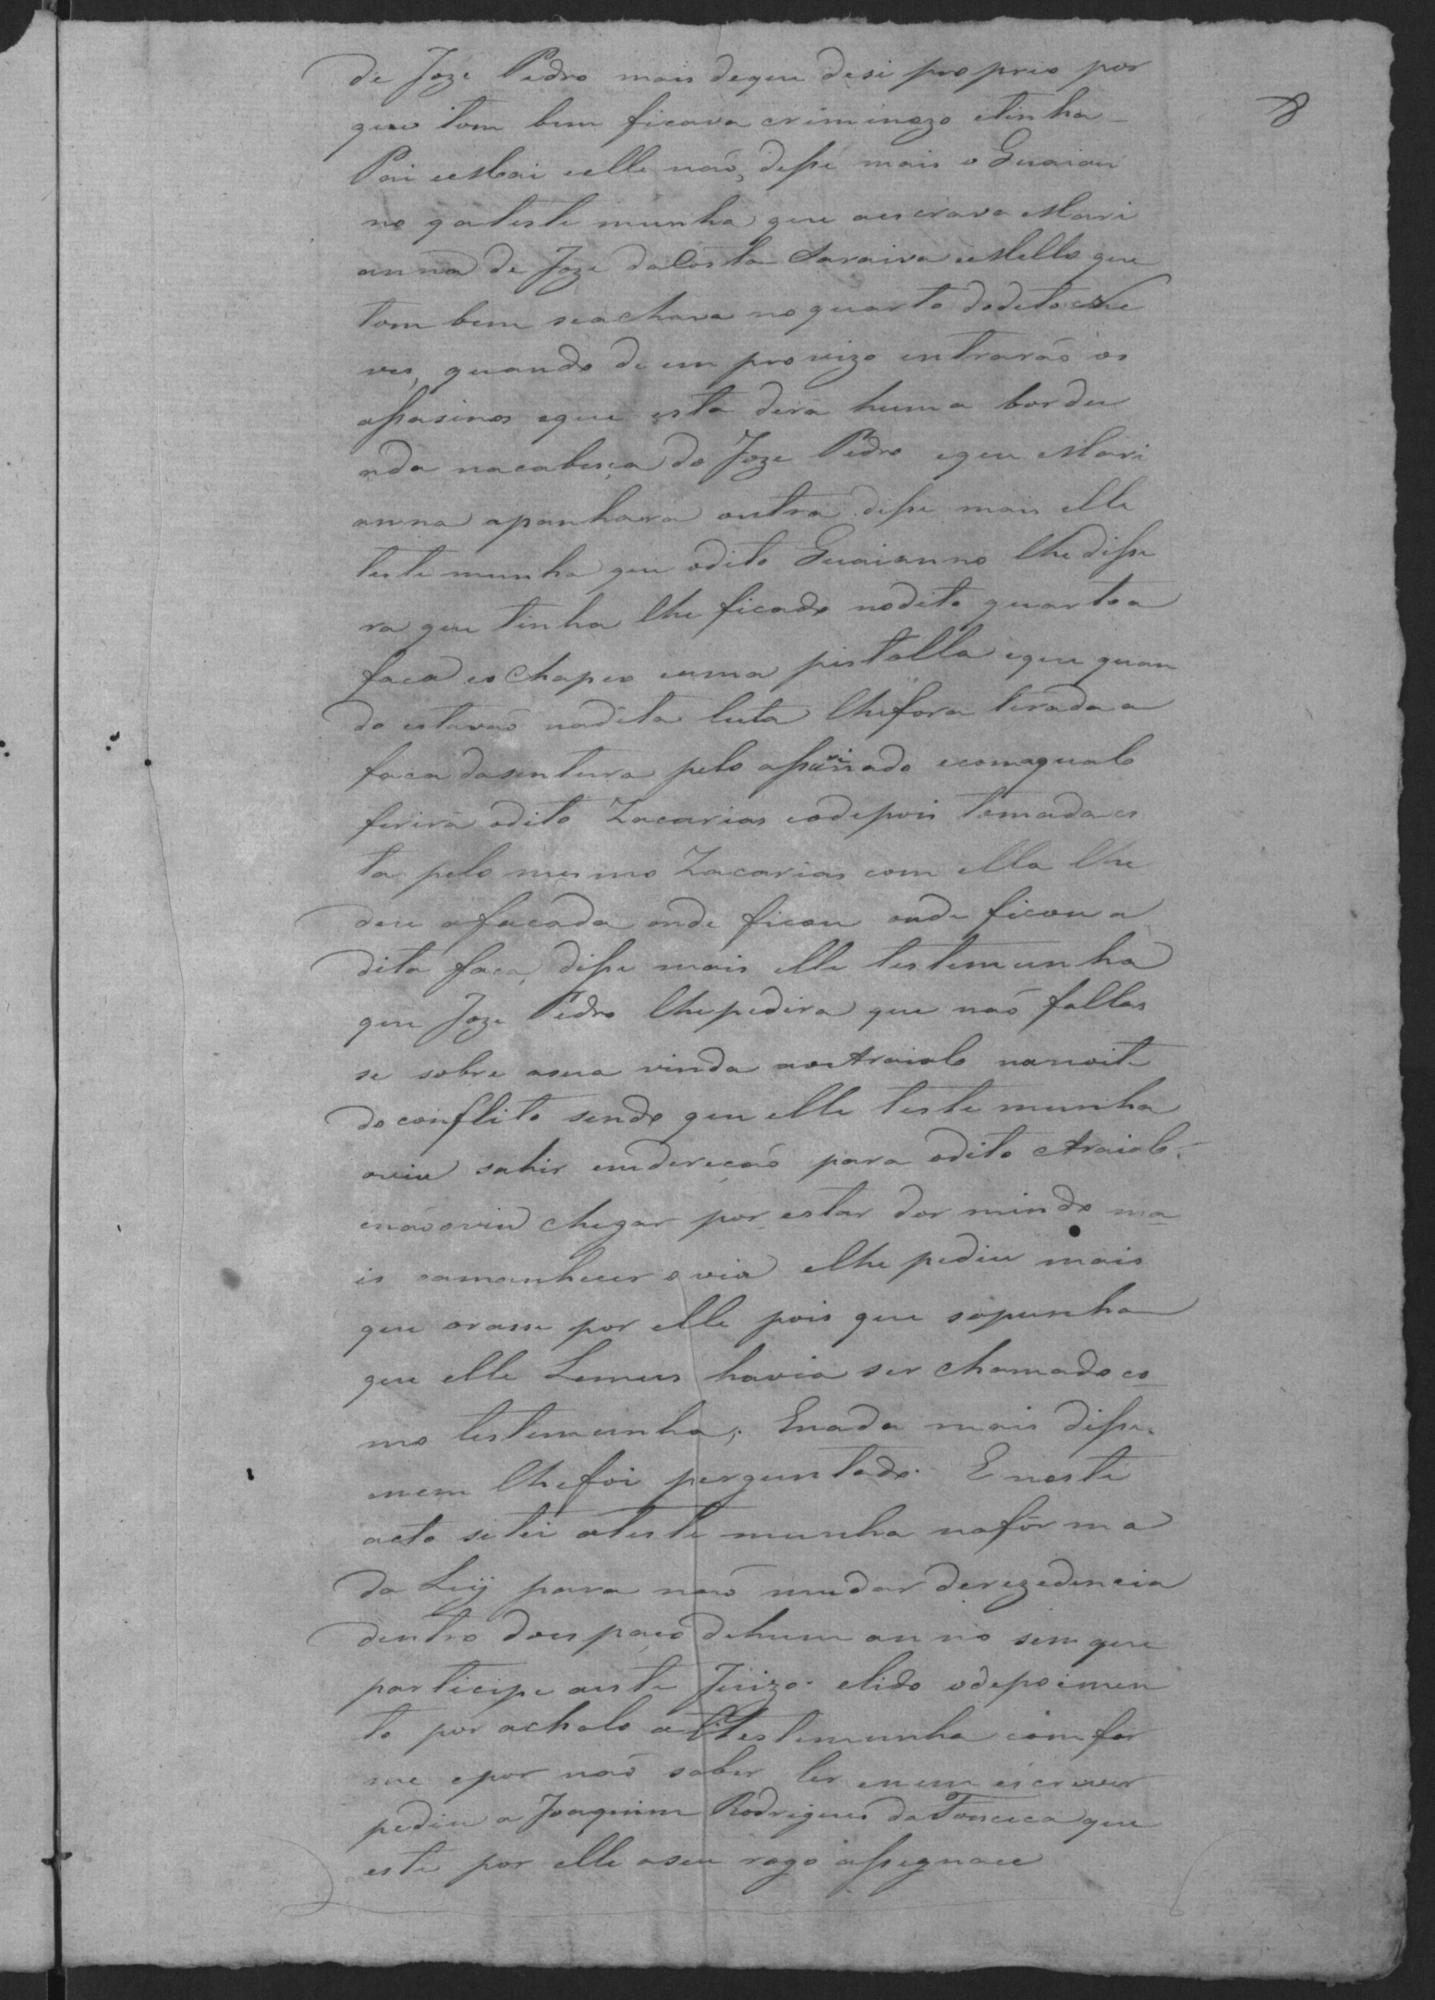 8
de Joze Pedro mais deque desi proprio por
que tom bem ficava criminozo etinha
Pai eeMai eelle não, disse mais o Guaian
no ga teste munha que aescrava Mari
anna de Joze daCosta Saraiva eMello que
tom bem seachava noquarto doditoNe
ves, quando de em provizo entrarão os
assasinos eque esta dera huma bordu
ada nacabeça do Joze Pedro eque Mari
anna apanhara outra disse mais elle
teste munha que odito Guaianno lhe disse
ra que tinha lhe ficado nodito quarto a
faca eo Chapeo euma pistolla eque quan
do estavão nadita luta lhefora tirada a
faca dasentura pelo assasinado ecomaqual
ferira odito Zacarias eodepois tomada es
ta pelo mesmo Zacarias com ella lhe
deu afacada onde ficou onde ficou a
dita faca, disse mais elle testemunha
que Joze Pedro lhepedira que não fallas
se sobre asua vinda aoArraial nanoite
doconflito sendo que elle teste munha
oviu sahir emdereção para odito Arraial.
enãooviu chegar por estar dor mindo ma
is aoamanhecer ovio elhe pediu mais
que orasse por elle pois que sopunha
que elle Lemes havia ser chamado co
mo testemunha, Enada mais disse.
enem lhefoi perguntado. E neste
acto sitei ateste munha nafór ma
da Leÿ para não mudar derezedencia
dentro does paço dehum anno sem que
participe aeste Juizo. elido odepoimen
to por achalo a testemunha comfor
me epor não saber ler enem escrever
pediu a Joaquim Rodrigues daFonceca que
este por elle aseu rogo assegnace